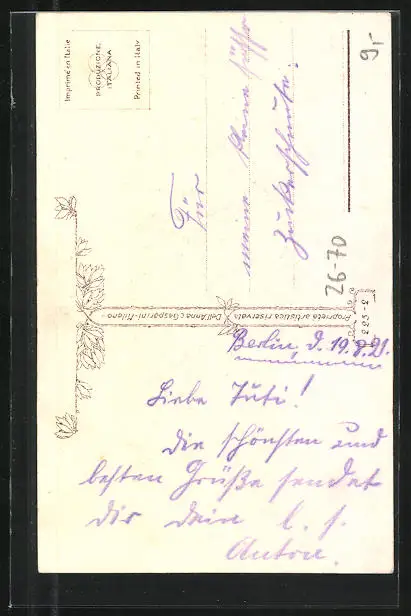 Imprimé en Italie
PRODUZIONE
ITALIANA
Printed in Italy
9,-
Für
meine kleine süße
Zuckerschnute.
26-70
Dell'Anna e Gasparini-Milano
Proprietà artistica riservata
223-2
Berlin, d. 19.8.21.
Liebe Tuti!
Die schönsten und
besten Grüße sendet
dir dein l. f.
Anton.